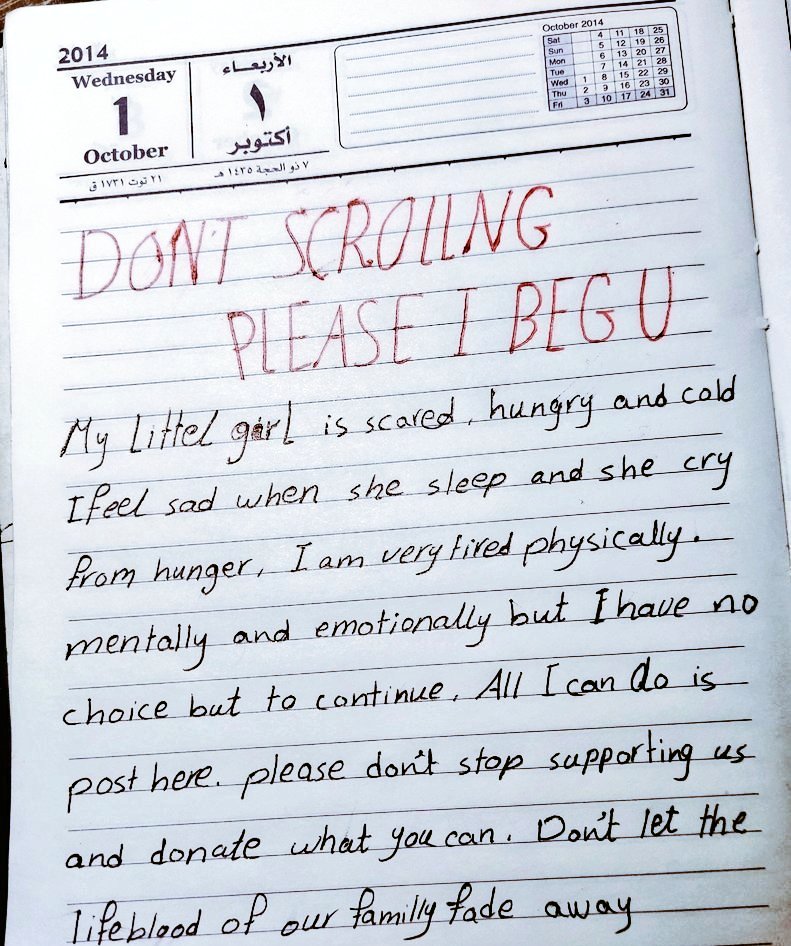 2014
Wednesday
1
October
الأربعاء
١
أكتوبر
٢١ توت ١٧٣١ ق
٧ ذو الحجة ١٤٣٥ هـ
October 2014
Sat 4 11 18 25
Sun 5 12 19 26
Mon 6 13 20 27
Tue 7 14 21 28
Wed 1 8 15 22 29
Thu 2 9 16 23 30
Fri 3 10 17 24 31
DON'T SCROLLING
PLEASE I BEG U
My Littel girl is scared, hungry and cold
I feel sad when she sleep and she cry
from hunger, I am very tired physically.
mentally and emotionally but I have no
choice but to continue. All I can do is
post here. please don't stop supporting us
and donate what you can. Don't let the
lifeblood of our familly fade away